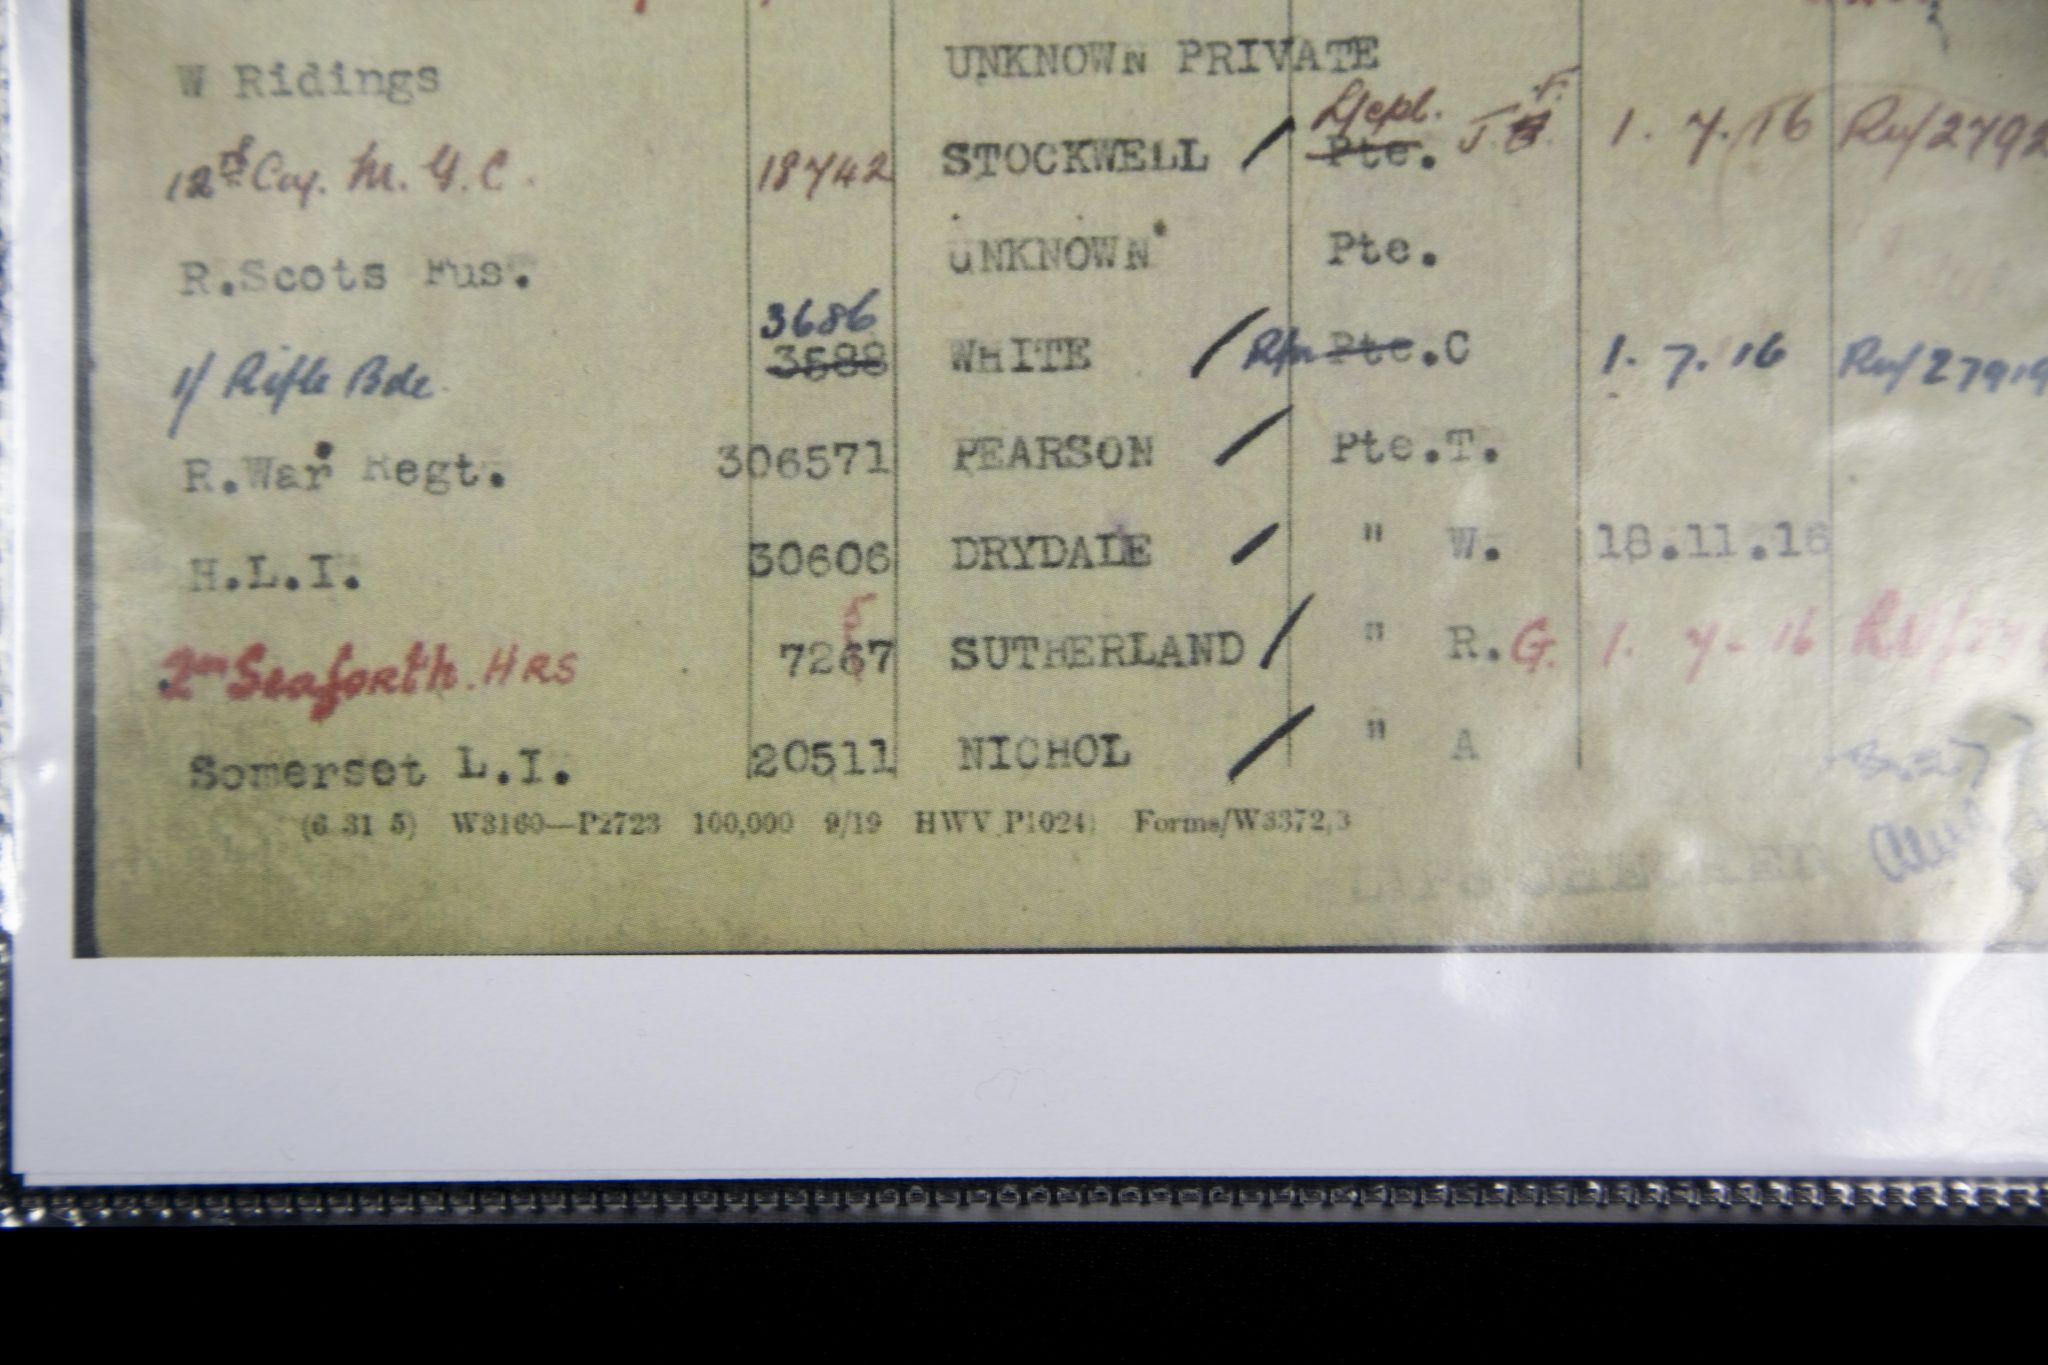 W Ridings UNKNOWN PRIVATE
L/cpl. F.
12th Coy. M. G. C. 18742 STOCKWELL / Pte. J. 1. 7. 16 Ref 2792
R.Scots Fus. UNKNOWN Pte.
3686
1/ Rifle Bde. 3588 WHITE / Rfn Pte.C 1. 7. 16 Ref 27919
R.War Regt. 306571 PEARSON / Pte.T.
H.L.I. 30606 DRYDALE / " W. 18.11.16
5
2nd Seaforth. HRS 7267 SUTHERLAND / " R.G. 1. 7. 16
Somerset L.I. 20511 NICHOL / " A
(6 31 5) W3160—P2723 100,000 9/19 HWV P1024) Forms/W3372,3